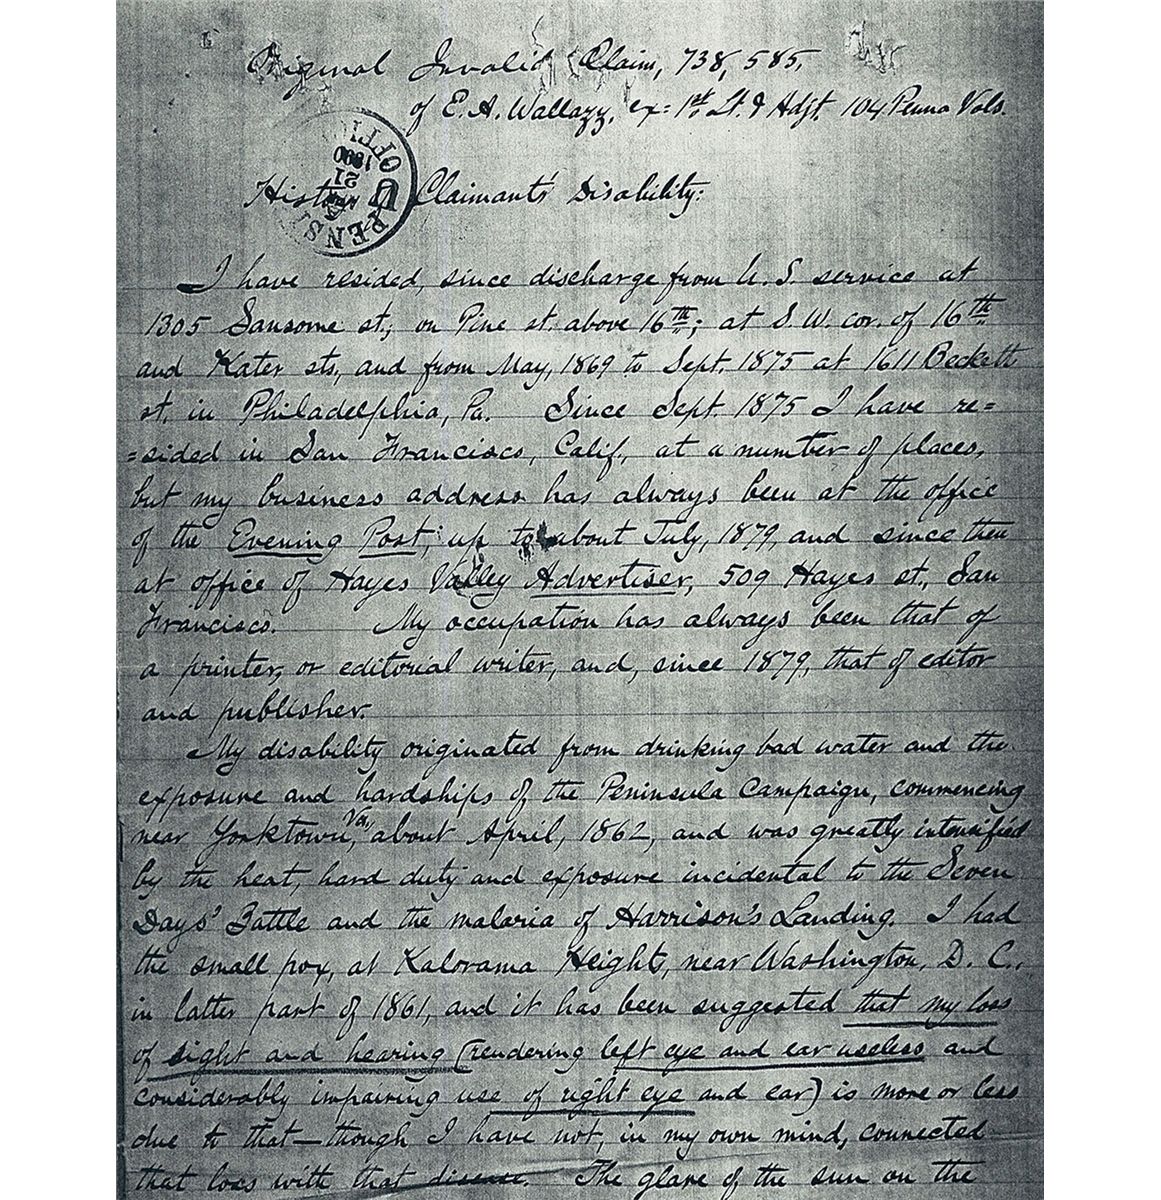 Original Invalid Claim, 738,585,
of E. A. Wallazz, ex= 1st Lt. & Adjt. 104 Penna Vols.
PENS OFFI
21
1890
Hist Claimant's Disability:
I have resided, since discharge from U. S. service at
1305 Sansome st.; on Pine st. above 16th; at S. W. cor. of 16th
and Kater sts., and from May, 1869 to Sept. 1875 at 1611 Beckett
st. in Philadelphia, Pa. Since Sept. 1875 I have re=
=sided in San Francisco, Calif., at a number of places,
but my business address has always been at the office
of the Evening Post, up to about July, 1879, and since then
at office of Hayes Valley Advertiser, 509 Hayes st., San
Francisco. My occupation has always been that of
a printer, or editorial writer, and, since 1879, that of editor
and publisher.
My disability originated from drinking bad water and the
exposure and hardships of the Peninsula Campaign, commencing
near Yorktown, Va., about April, 1862, and was greatly intensified
by the heat, hard duty and exposure incidental to the Seven
Days' Battle and the malaria of Harrison's Landing. I had
the small pox, at Kalorama Height, near Washington, D. C.,
in latter part of 1861, and it has been suggested that my loss
of sight and hearing (rendering left eye and ear useless and
considerably impairing use of right eye and ear) is more or less
due to that—though I have not, in my own mind, connected
that loss with that disease. The glare of the sun on the